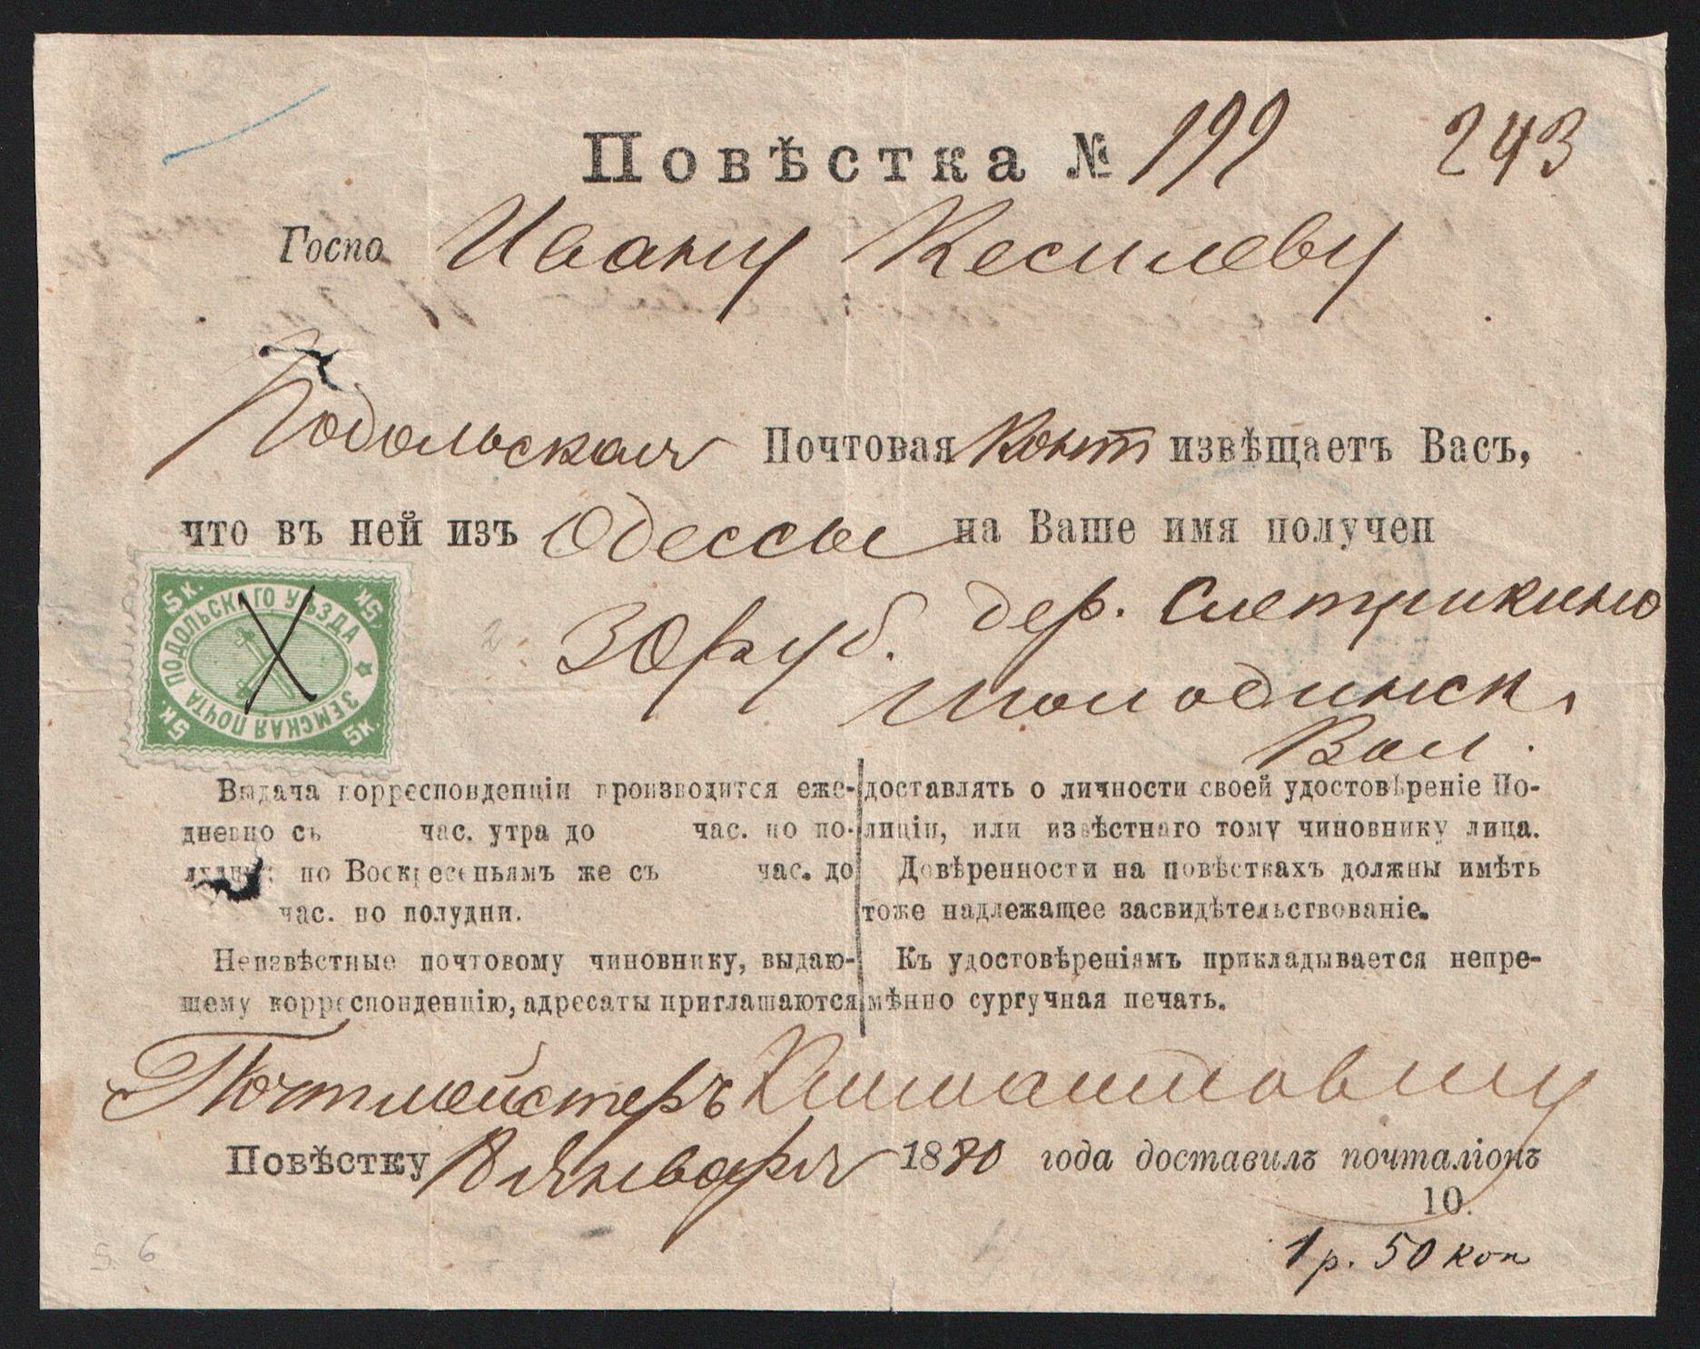 Повѣстка № 192 243
Госпо Ивану Кесилеву
Подольская Почтовая Конт извѣщаетъ Васъ,
что въ ней изъ Одессы на Ваше имя получен
30 руб. дер.
Вол.
5 К. 5 К.
ПОДОЛЬСКАГО УѢЗДА
ЗЕМСКАЯ ПОЧТА
5 К. 5 К
Выдача корреспонденціи производится еже-
дневно съ час. утра до час. по по-
лудни; по Воскресеньямъ же съ час. до
час. по полудни.
Неизвѣстные почтовому чиновнику, выдаю-
щему корреспонденцію, адресаты приглашаются
доставлять о личности своей удостовѣреніе По-
лиціи, или извѣстнаго тому чиновнику лица.
Довѣренности на повѣсткахъ должны имѣть
тоже надлежащее засвидѣтельствованіе.
Къ удостовѣреніямъ прикладывается непре-
мѣнно сургучная печать.
Почтмейстеръ
Повѣстку Января 1880 года доставилъ почталіонъ
10.
1 р. 50 коп
5 6